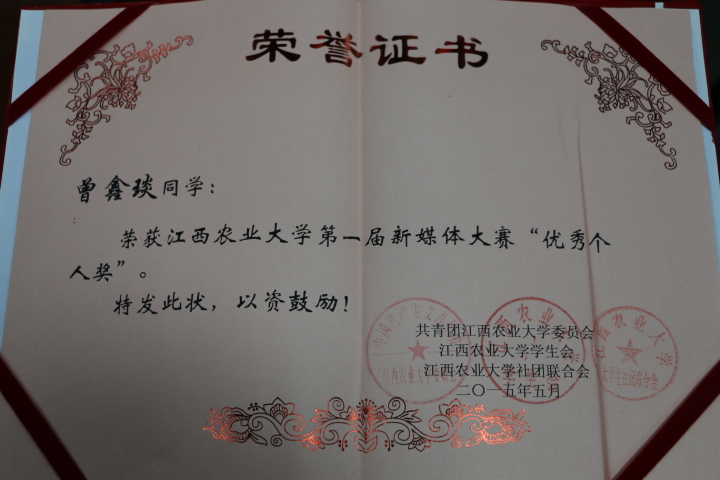 荣誉证书
曾鑫琰同学：
荣获江西农业大学第一届新媒体大赛“优秀个
人奖”。
特发此状，以资鼓励！
共青团江西农业大学委员会
江西农业大学学生会
江西农业大学社团联合会
二〇一五年五月
江西农业大学
大学生社团联合会